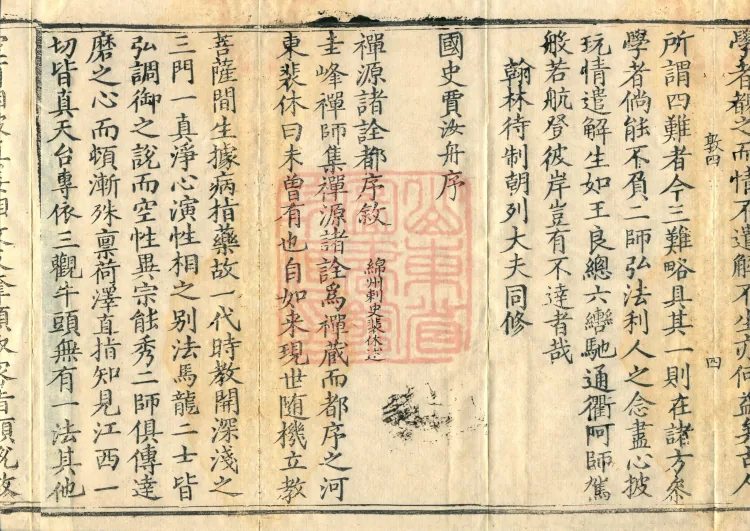 學者都之而情不遣解不生亦何益矣古人
敘四
四
所謂四難者今三難略具其一則在諸方叅
學者倘能不負二師弘法利人之念盡心披
玩情遣解生如王良總六轡馳通衢呵師駕
般若航登彼岸豈有不達者哉
翰林待制朝列大夫同修
國史賈汝舟序
禪源諸詮都序敘 綿州刺史裴休述
圭峰禪師集禪源諸詮爲禪藏而都序之河
東裴休曰未曽有也自如来現世随機立教
菩薩間生據病指藥故一代時教開深淺之
三門一真淨心演性相之别法馬龍二士皆
弘調御之說而空性異宗能秀二師俱傳達
磨之心而頓漸殊禀荷澤直指知見江西一
切皆真天台專依三觀牛頭無有一法其他